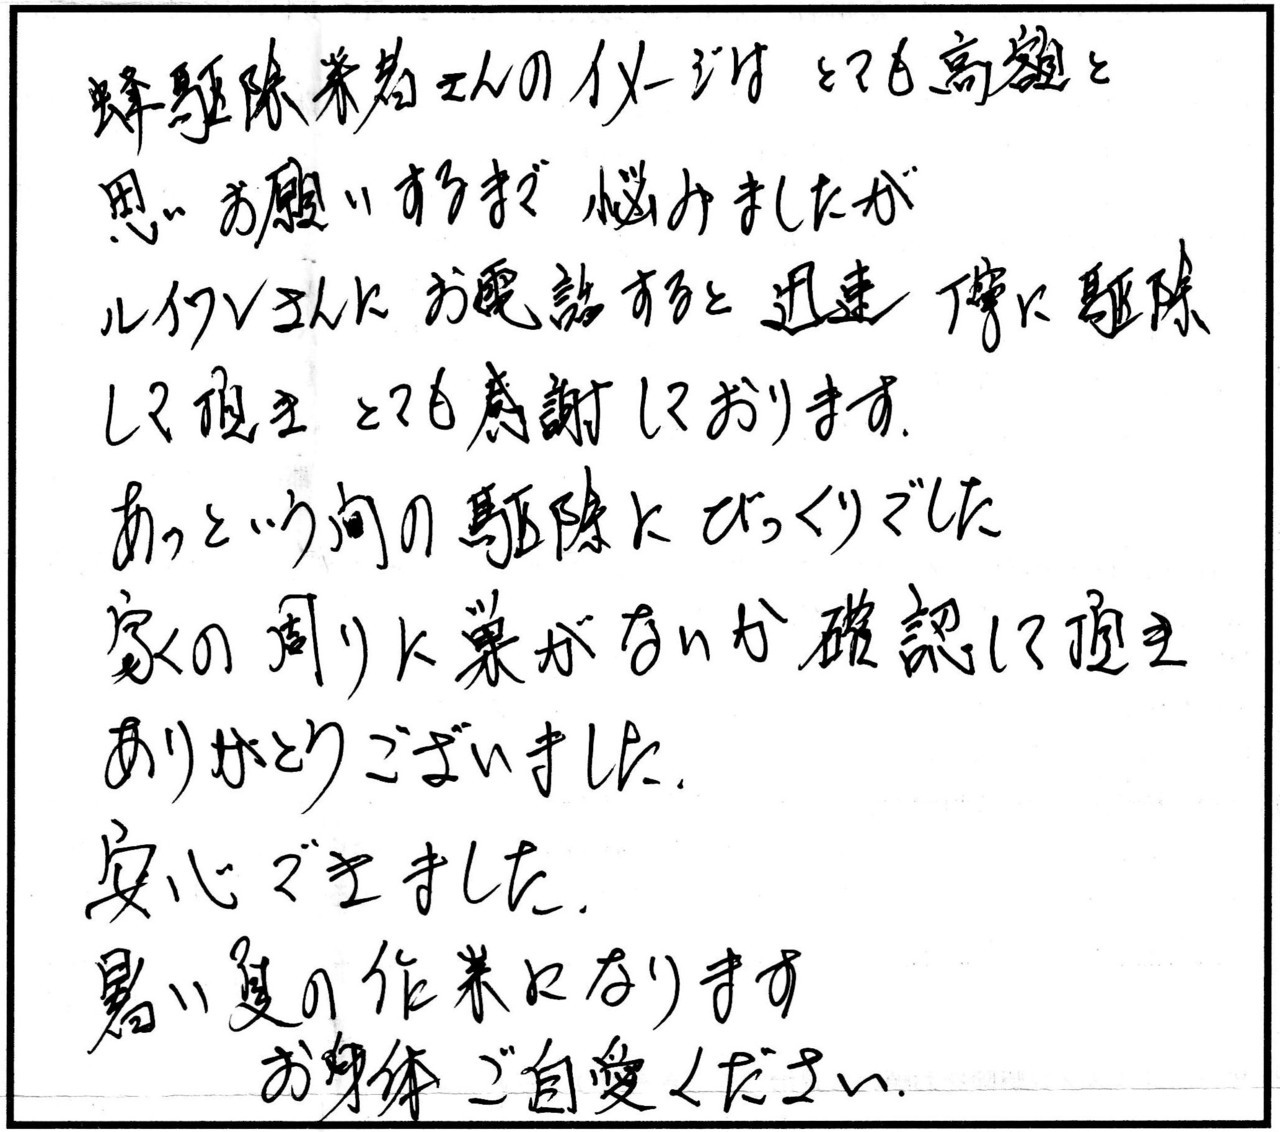 蜂駆除業者さんのイメージは とても高額と
思い お願いするまで 悩みましたが
ルイワンさんに お電話すると 迅速 丁寧に 駆除
して頂き とても感謝しております.
あっという間の駆除に びっくりでした
家の周りに巣がないか確認して頂き
ありがとうございました.
安心できました.
暑い夏の作業になります
お身体 ご自愛ください.